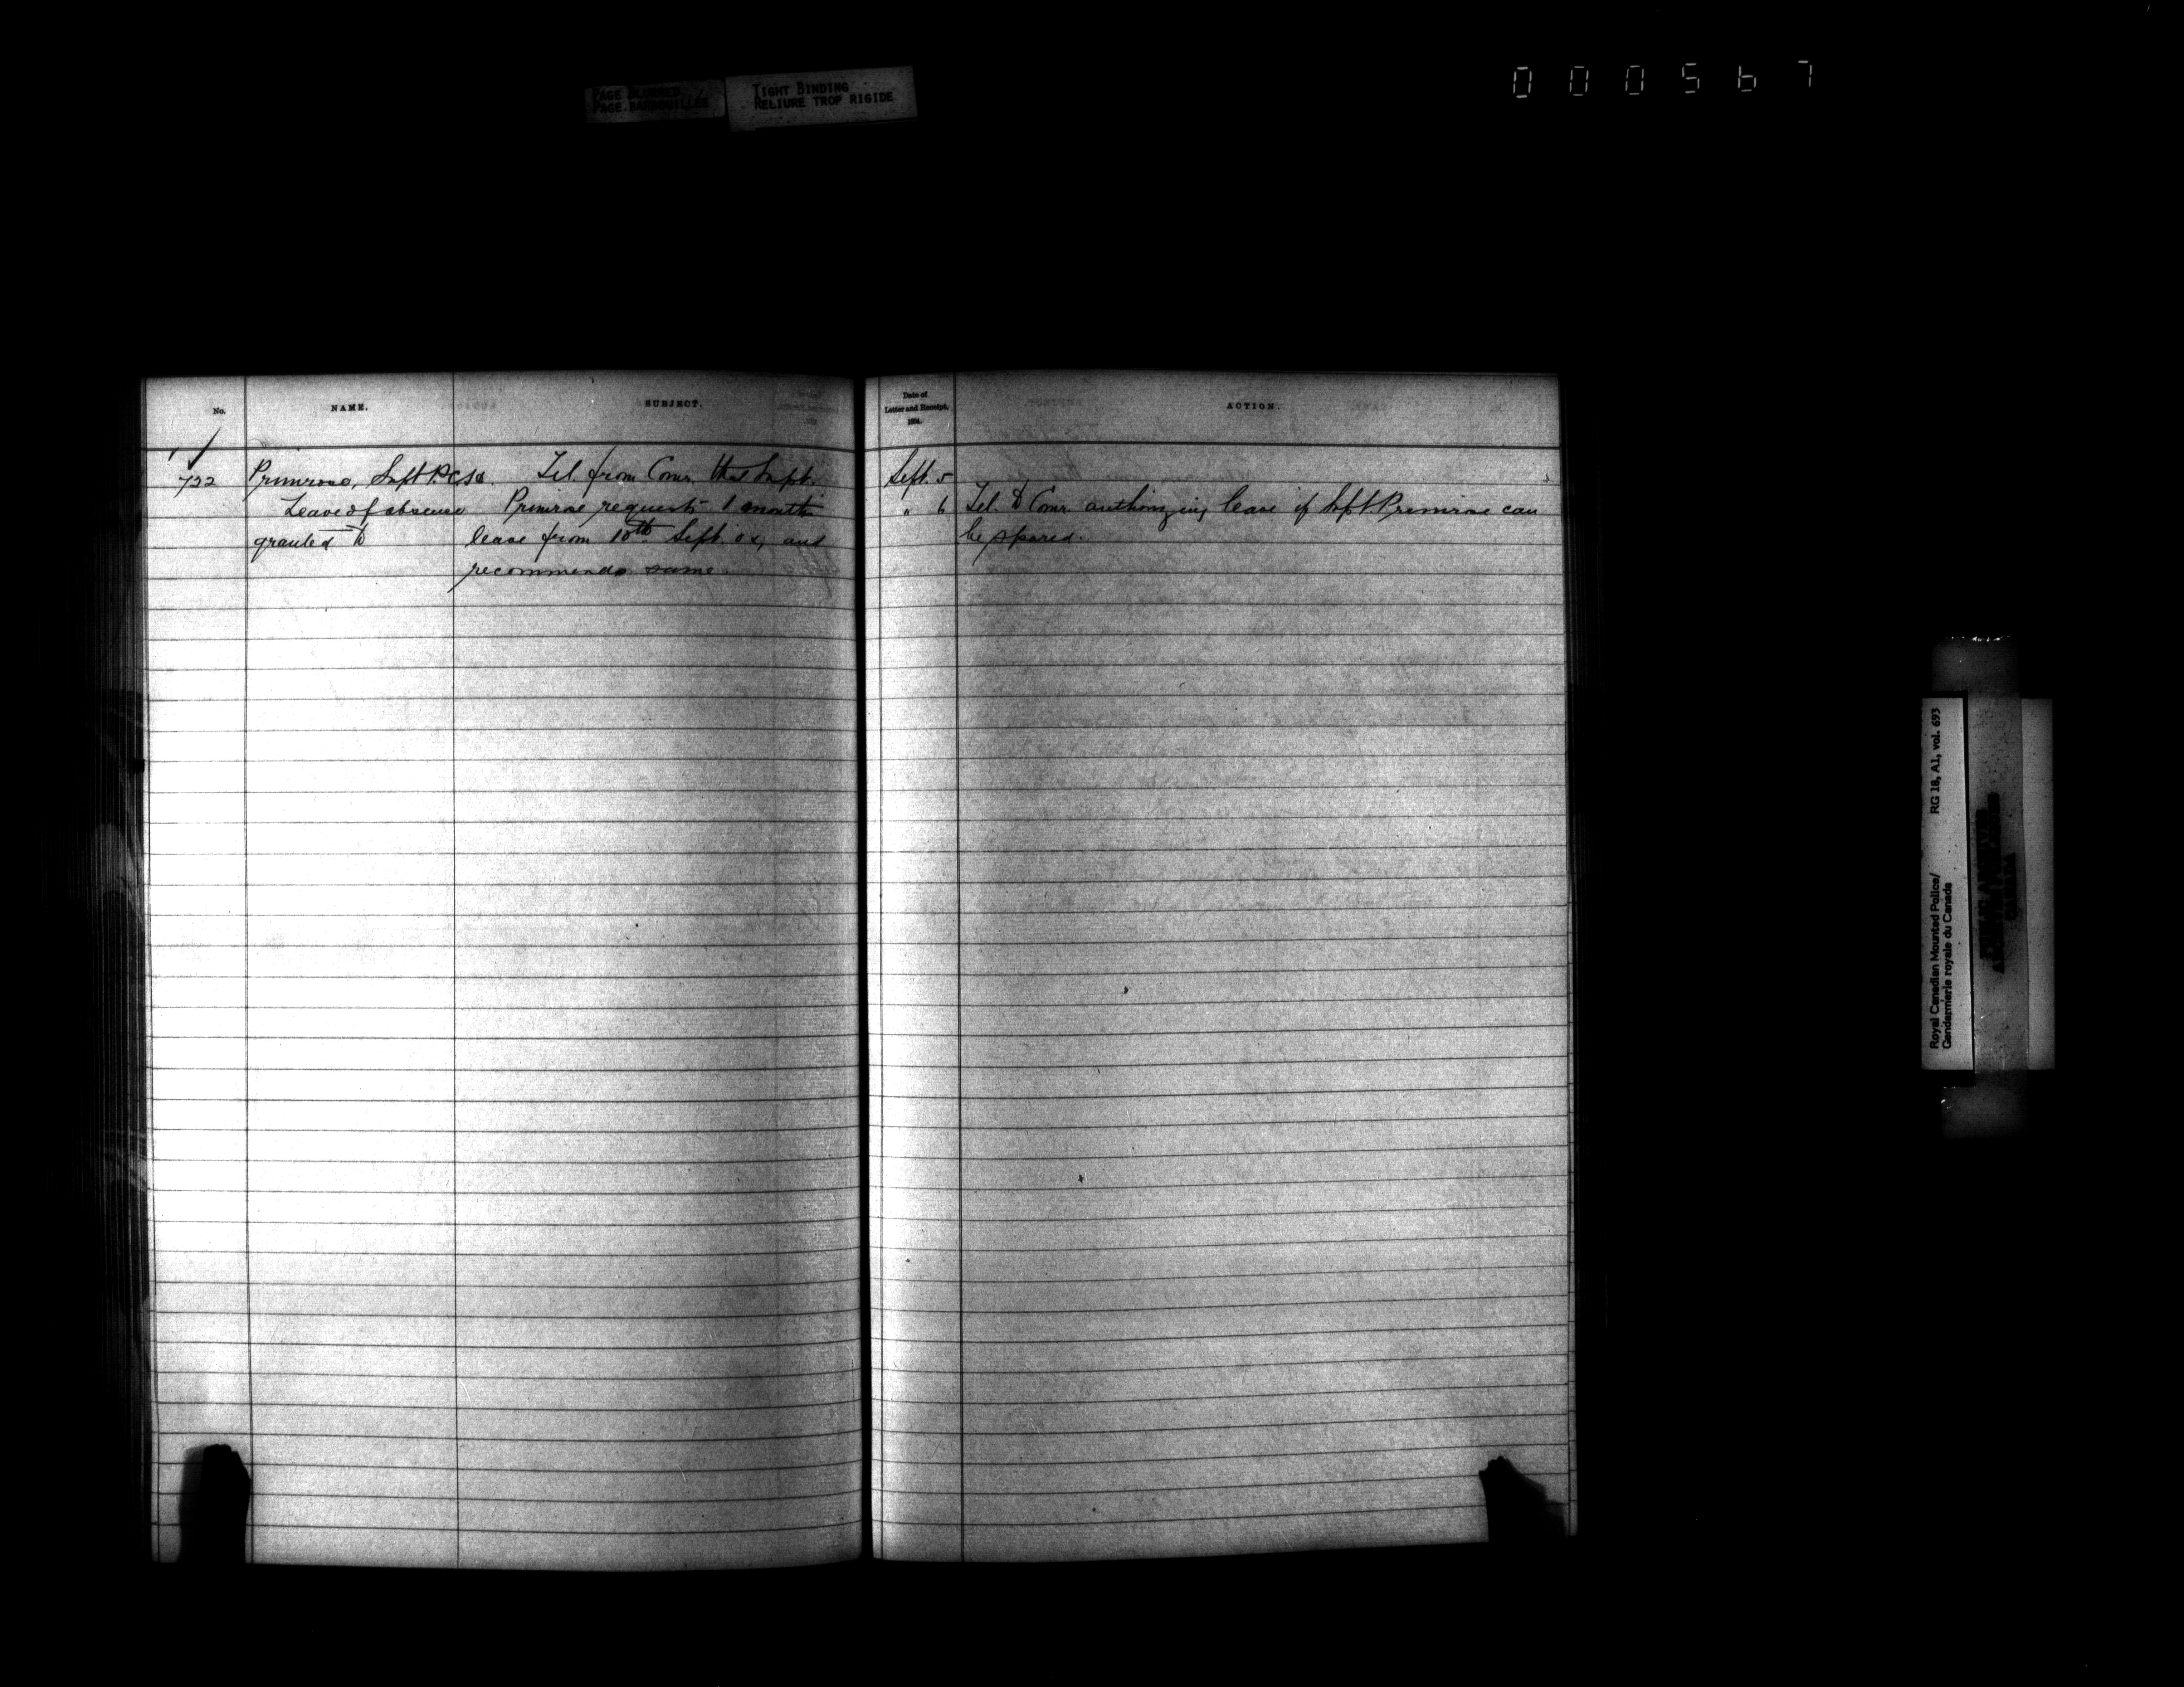 PAGE BLURRED
PAGE BARBOUILLÉE
TIGHT BINDING
RELIURE TROP RIGIDE
000567
No.
NAME.
SUBJECT.
722
Primrose, Supt. P.C.H.
Leave of absence
granted to
Tel. from Comr. that Supt.
Primrose requests 1 months
leave from 10th Sept. and
recommends same.
Date of
Letter and Receipt,
1894.
ACTION.
Sept. 5
" 6 Tel. to Comr. authorizing leave if Supt. Primrose can
be spared.
Royal Canadian Mounted Police/
Gendarmerie royale du Canada
RG 18, A1, vol. 693
PUBLIC ARCHIVES
ARCHIVES PUBLIQUES
CANADA